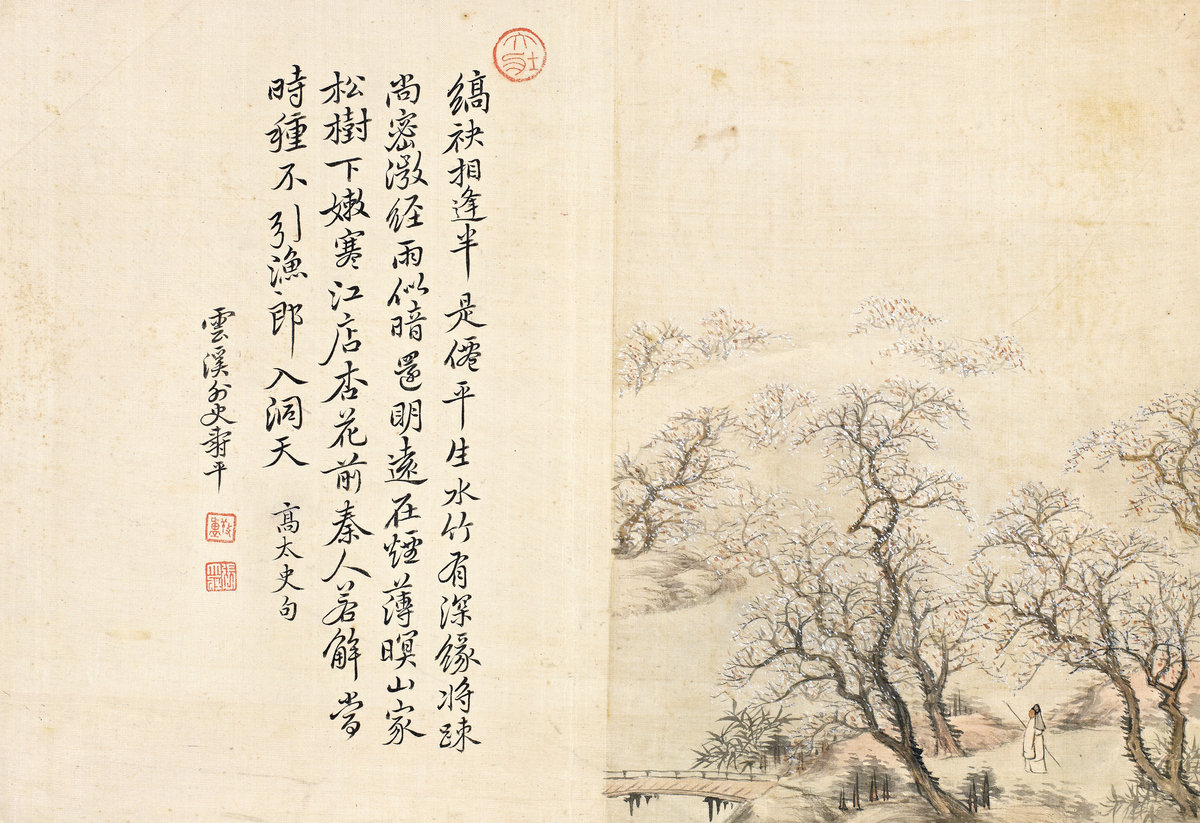 縞袂相逢半是僊平生水竹有深緣將踈
尚密微經雨似暗還明遠在煙薄暝山家
松樹下嫩寒江店杏花前秦人若解當
時種不引漁郎入洞天 高太史句
雲溪外史壽平